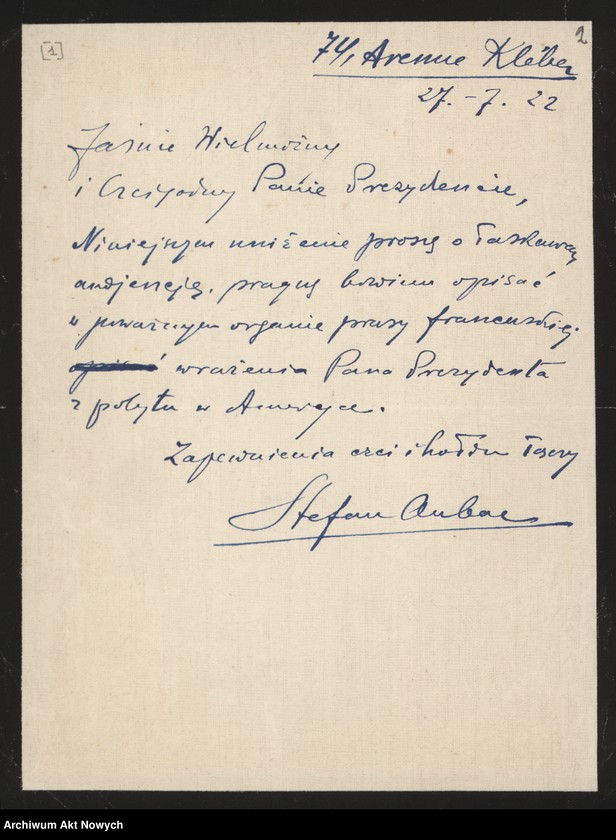 [1]
2
74, Avenue Kléber
27.-7. 22
Jaśnie Wielmożny
i Czcigodny Panie Prezydencie,
Niniejszym uniżenie proszę o łaskawą
audjencję, pragnę bowiem opisać
w poważnym organie prasy francuskiej
opisać wrażenia Pana Prezydenta
z pobytu w Ameryce.
Zapewnienia czci i hołdu łączy
Stefan Aubac
Archiwum Akt Nowych